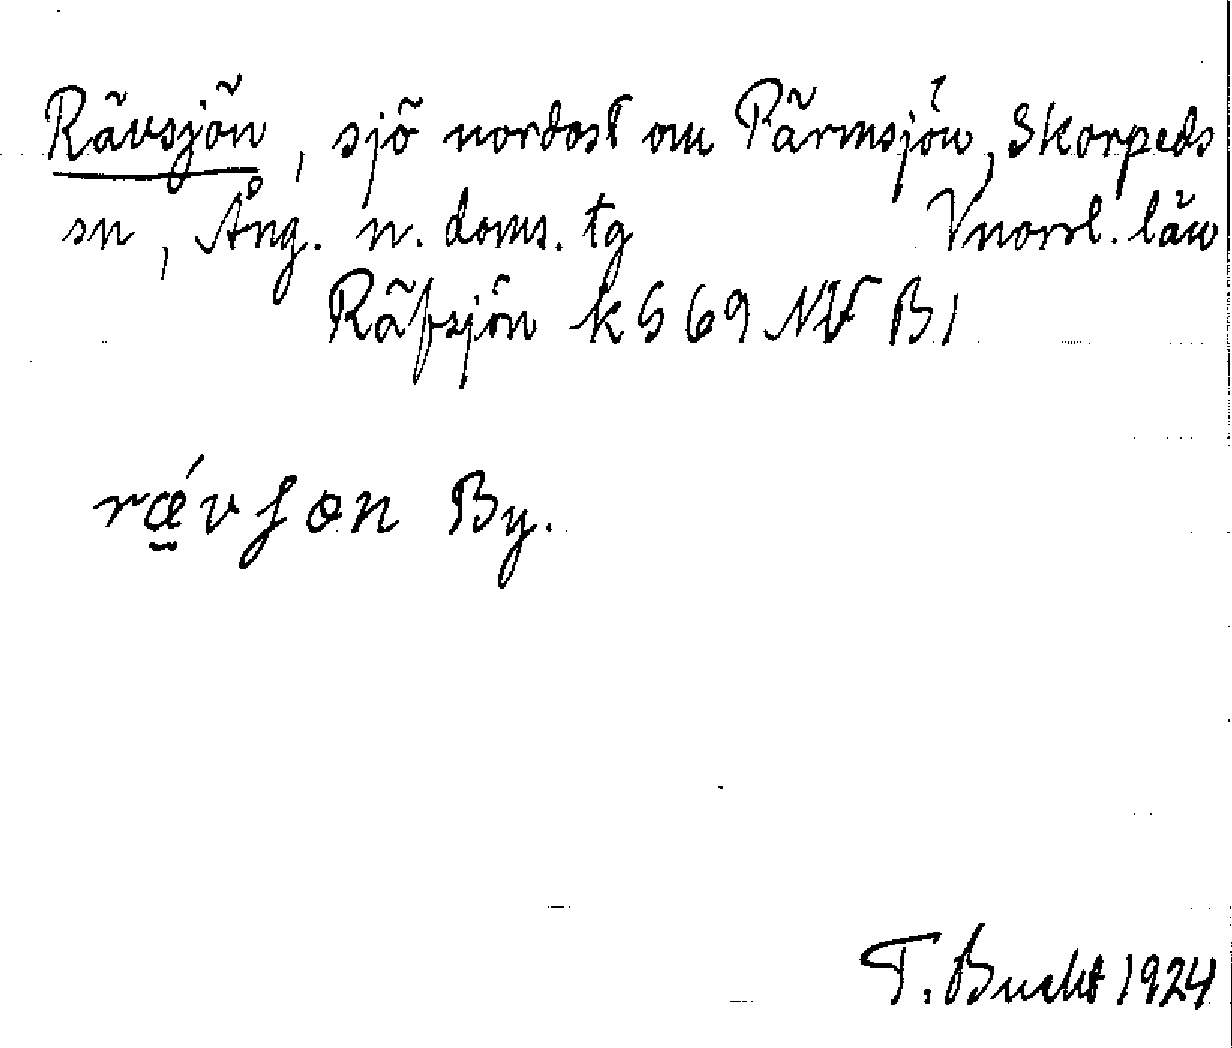 Rävsjön, sjö nordost om Pärmsjön, Skorpeds
sn, Ång. n. doms. tg Vnorrl. län
Räfsjön k S 69 NV B1
rǽvʃøn By.
T. Bucht 1924